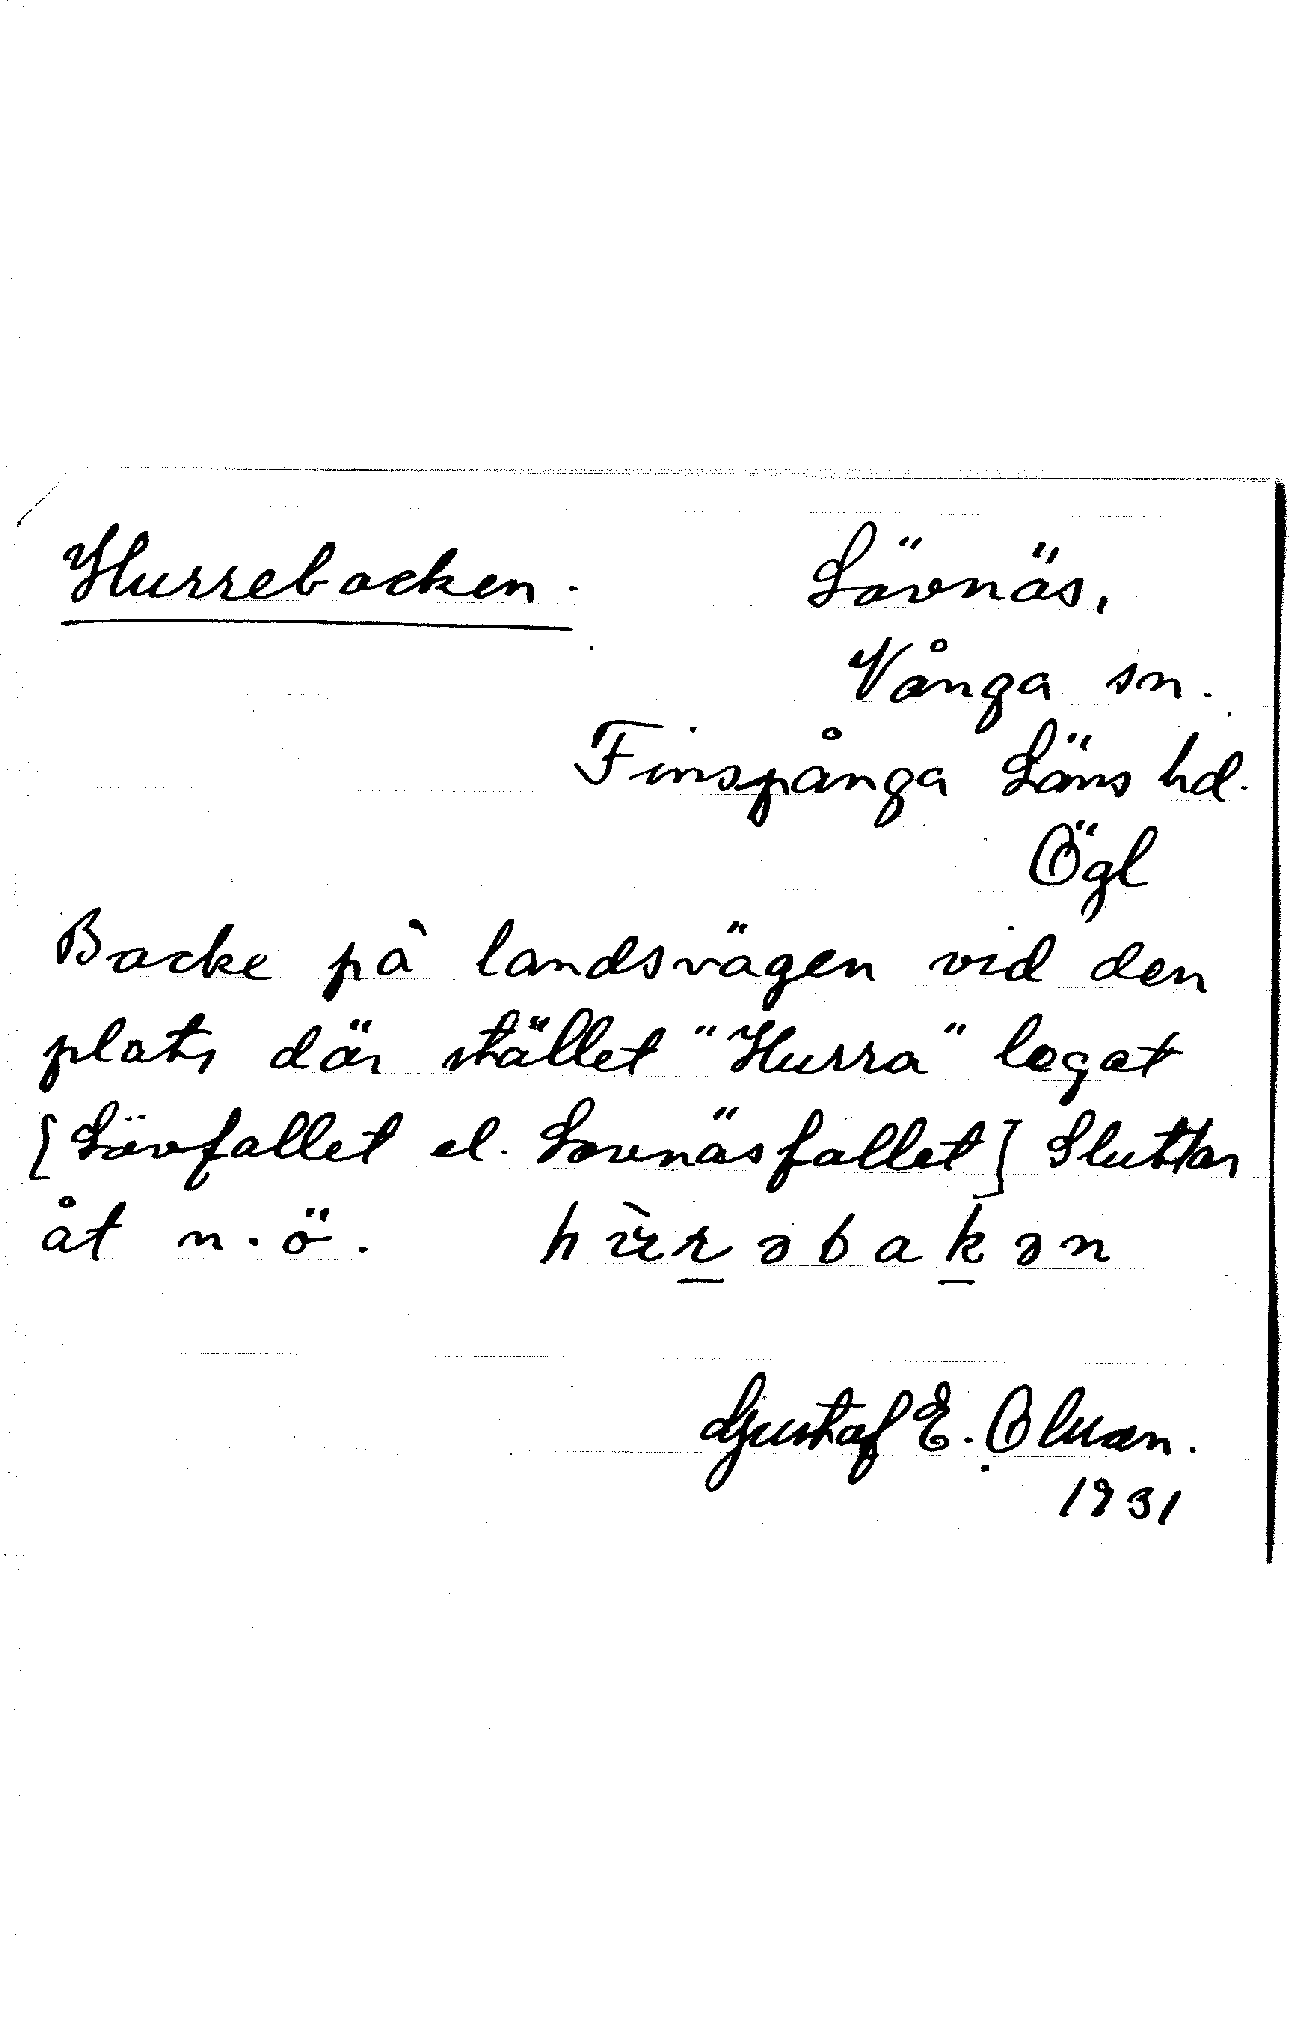 Hurrebacken.
Lövnäs,
Vånga sn.
Finspånga Läns hd.
Ögl
Backe på landsvägen vid den
plats där stället "Hurra" legat
[Lövfallet el. Lövnäsfallet] Sluttar
åt n.ö.
Gustaf E.
1931